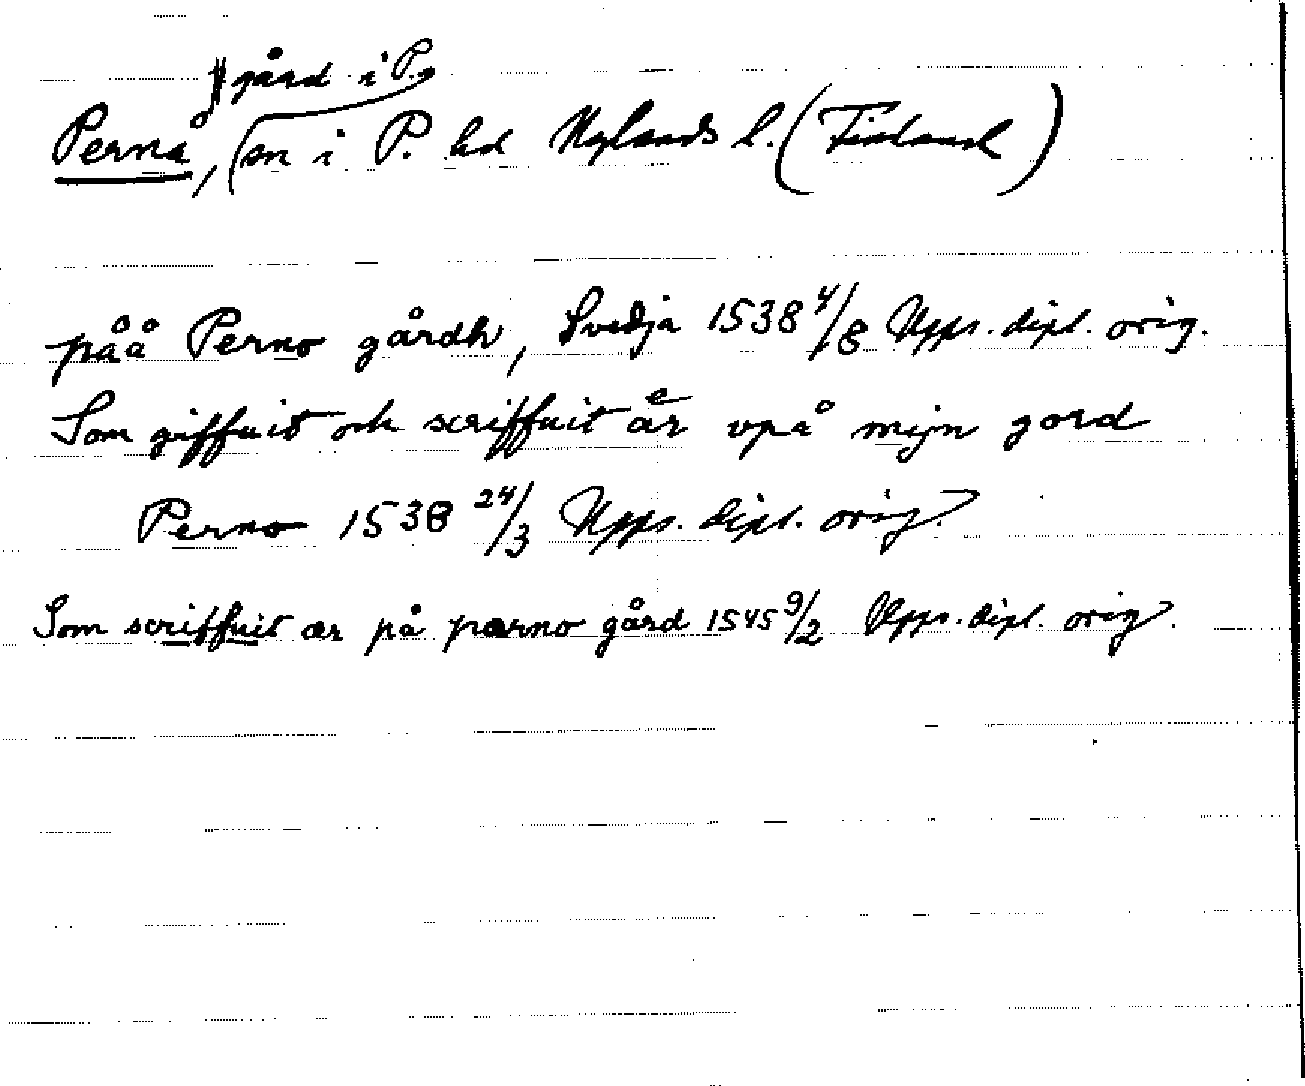 gård i P.
Pernå, sn i P. hd Nylands l. (Finland)
påå Perno gårdh, Svidja 1538 4/8 Upps. dipl. orig.
Som giffuit och scriffuit är vpå mijn gord
Perno 1538 24/3 Upps. dipl. orig.
Som scriffuit ær på pærno gård 1545 9/2 Upps. dipl. orig.